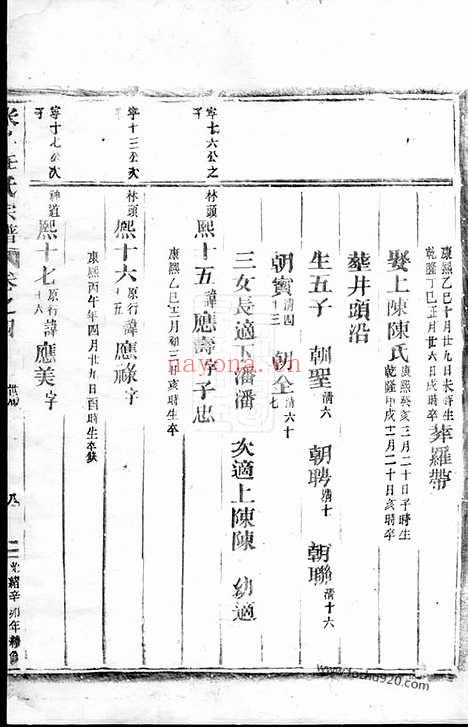 康熙乙巳十月廿九日未時生
乾隆丁巳正月廿六日戌時卒
葬羅帶
娶上陳陳氏
康熙癸亥三月二十日子時生
乾隆甲戌十二月二十日亥時卒
葬井頭沿
生五子 朝聖清六 朝聘清十 朝聯清十六
朝賓清四三 朝全清六十七
三女長適下潘潘 次適上陳陳 幼適
寧十六公之子
林頭
熙十五諱應壽字子忠
康熙乙巳十二月初三日亥時生卒
寧十三公次子
林頭
熙十六原行十五諱應祿字
康熙丙午年四月廿九日酉時生卒缺
寧十七公次子
神道
熙十七原行十六諱應美字
氏宗譜 卷之四
光緒辛卯年續修
nayona.cn
www.fozhu920.com